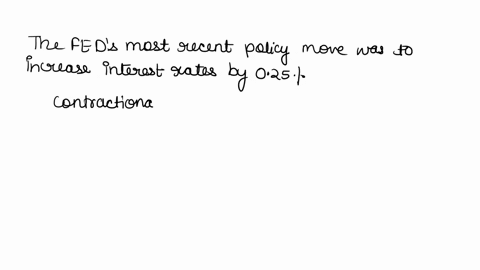 The FED's most recent policy move was to
increase interest rates by 0.25%.
contractiona